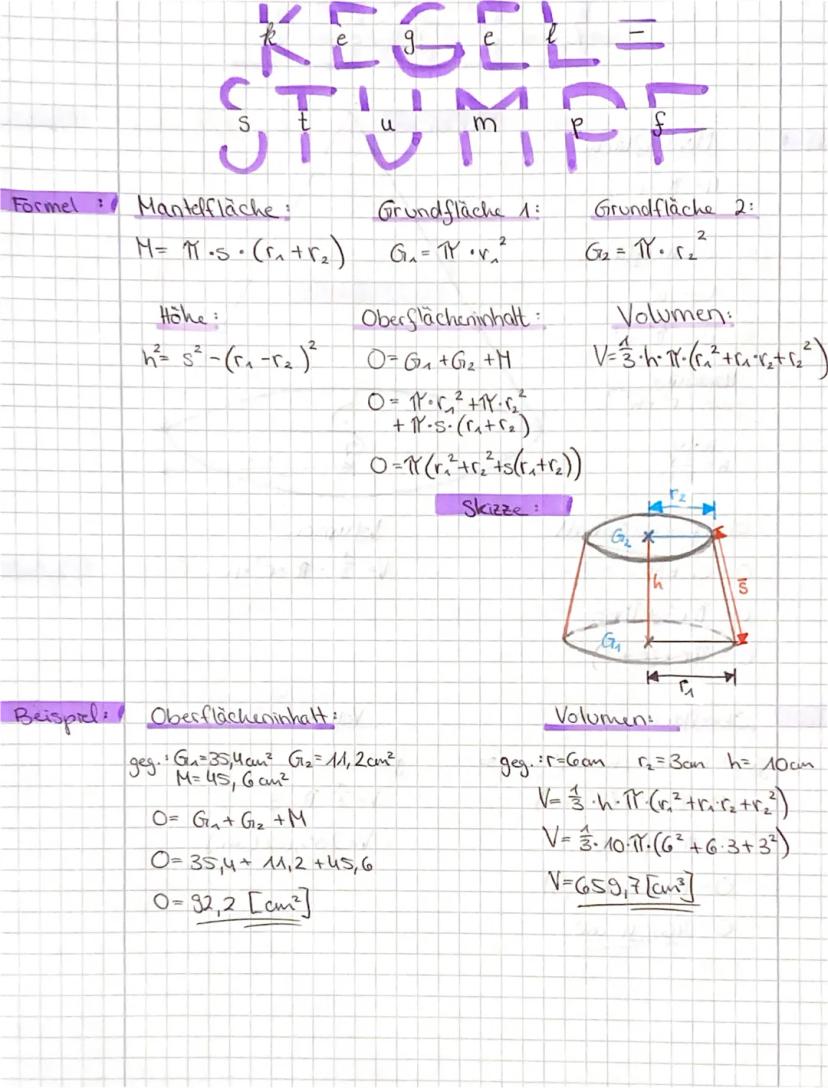 KEGEL=
k e g e l
STUMPF
s t u m p f
Formel:
Mantelfläche:
M= π·s·(r₁+r₂)
Grundfläche 1:
G₁=π·r₁²
Grundfläche 2:
G₂=π·r₂²
Höhe:
h²= s²-(r₁-r₂)²
Oberflächeninhalt:
O=G₁+G₂+M
O= π·r₁²+π·r₂²
+π·s·(r₁+r₂)
O=π(r₁²+r₂²+s(r₁+r₂))
Volumen:
V=1/3·h·π·(r₁²+r₁·r₂+r₂²)
Skizze:
r₂
G₂
h
s̄
G₁
r₁
Beispiel:
Oberflächeninhalt:
geg.: G₁=35,4cm² G₂=11,2cm²
M=45,6cm²
O= G₁+G₂+M
O=35,4+11,2+45,6
O=92,2 [cm²]
Volumen:
geg.: r=6cm r₂=3cm h= 10cm
V=1/3·h·π·(r₁²+r₁·r₂+r₂²)
V=1/3·10·π·(6²+6·3+3²)
V=659,7[cm³]